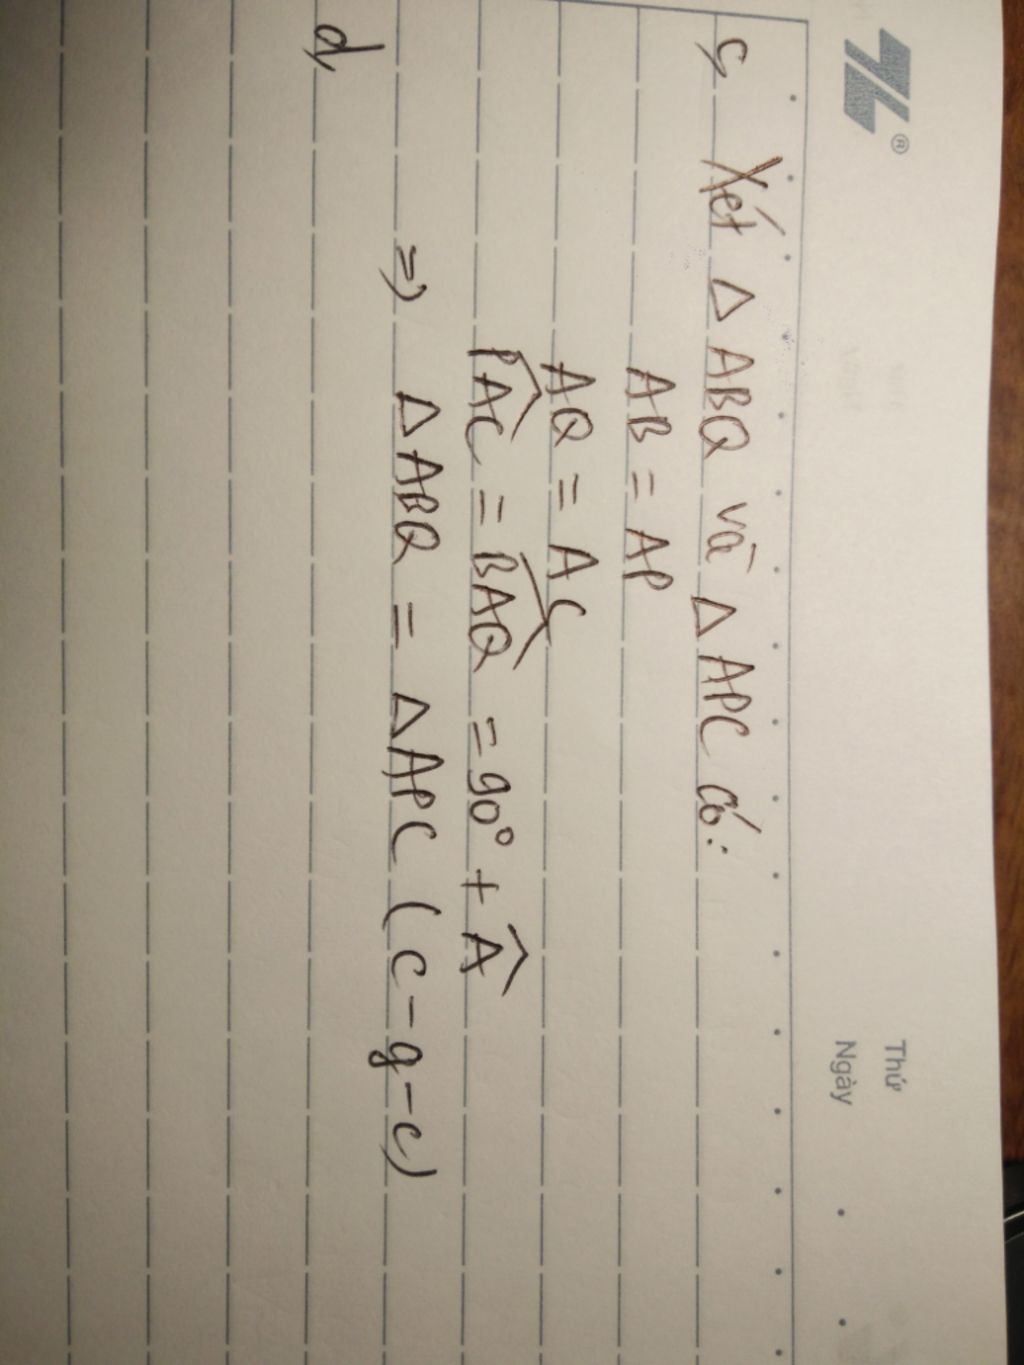 TL®
Thứ
Ngày
c, Xét Δ ABQ và Δ APC có:
AB = AP
AQ = AC
PAC = BAQ = 90° + A
=> Δ ABQ = Δ APC (c-g-c)
d,